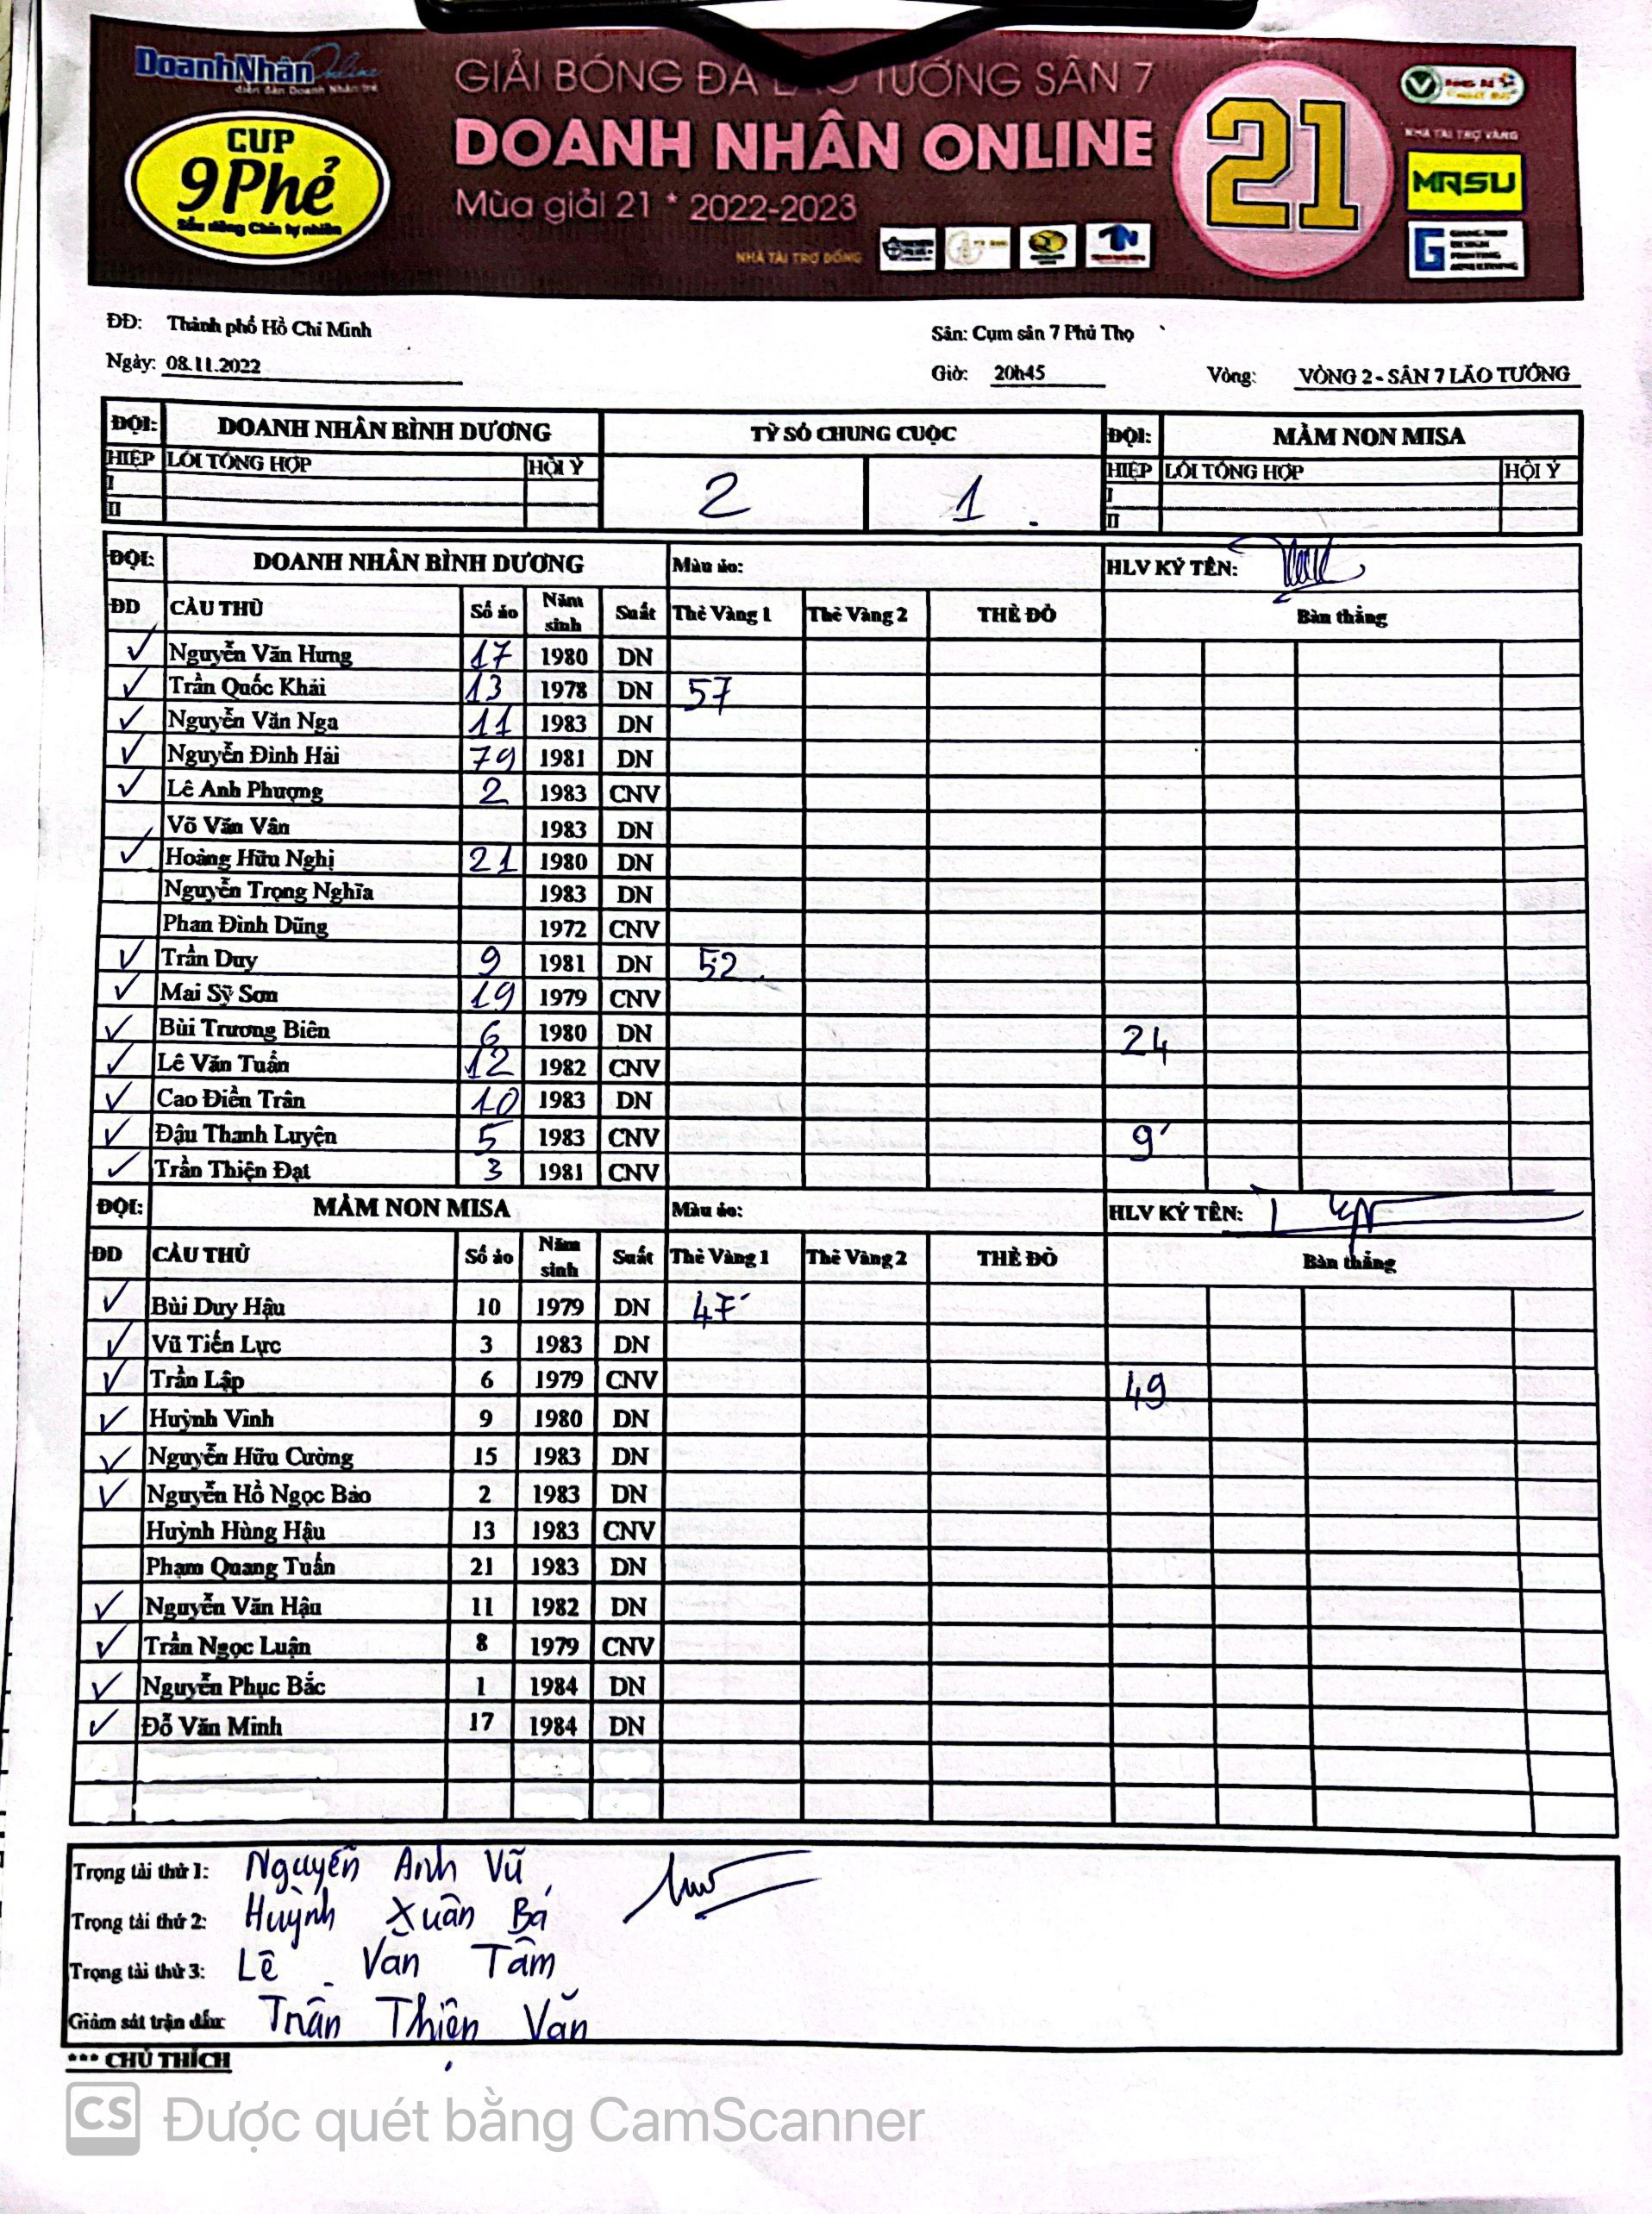 DoanhNhân Online
diễn đàn Doanh Nhân trẻ
CUP
9Phẻ
Sầu riêng Chín tự nhiên
GIẢI BÓNG ĐÁ LÃO TƯỚNG SÂN 7
DOANH NHÂN ONLINE
Mùa giải 21 * 2022-2023
NHÀ TÀI TRỢ ĐỒNG
21
NHÀ TÀI TRỢ VÀNG
MRSU
ĐĐ: Thành phố Hồ Chí Minh Sân: Cụm sân 7 Phú Thọ
Ngày: 08.11.2022 Giờ: 20h45 Vòng: VÒNG 2 - SÂN 7 LÃO TƯỚNG
ĐỘI: DOANH NHÂN BÌNH DƯƠNG TỶ SỐ CHUNG CUỘC ĐỘI: MẦM NON MISA
HIỆP LỖI TỔNG HỢP HỘI Ý 2 1 HIỆP LỖI TỔNG HỢP HỘI Ý
I I
II II
ĐỘI: DOANH NHÂN BÌNH DƯƠNG Màu áo: HLV KÝ TÊN:
ĐD CẦU THỦ Số áo Năm sinh Suất Thẻ Vàng 1 Thẻ Vàng 2 THẺ ĐỎ Bàn thắng
✓ Nguyễn Văn Hưng 17 1980 DN
✓ Trần Quốc Khải 13 1978 DN 57
✓ Nguyễn Văn Nga 11 1983 DN
✓ Nguyễn Đình Hải 79 1981 DN
✓ Lê Anh Phượng 2 1983 CNV
Võ Văn Vân 1983 DN
✓ Hoàng Hữu Nghị 21 1980 DN
Nguyễn Trọng Nghĩa 1983 DN
Phan Đình Dũng 1972 CNV
✓ Trần Duy 9 1981 DN 52
✓ Mai Sỹ Sơn 19 1979 CNV
✓ Bùi Trương Biên 6 1980 DN 24
✓ Lê Văn Tuấn 12 1982 CNV
✓ Cao Điền Trân 10 1983 DN
✓ Đậu Thanh Luyện 5 1983 CNV 9'
✓ Trần Thiện Đạt 3 1981 CNV
ĐỘI: MẦM NON MISA Màu áo: HLV KÝ TÊN:
ĐD CẦU THỦ Số áo Năm sinh Suất Thẻ Vàng 1 Thẻ Vàng 2 THẺ ĐỎ Bàn thắng
✓ Bùi Duy Hậu 10 1979 DN 47'
✓ Vũ Tiến Lực 3 1983 DN
✓ Trần Lập 6 1979 CNV 49
✓ Huỳnh Vinh 9 1980 DN
✓ Nguyễn Hữu Cường 15 1983 DN
✓ Nguyễn Hồ Ngọc Bảo 2 1983 DN
Huỳnh Hùng Hậu 13 1983 CNV
Phạm Quang Tuấn 21 1983 DN
✓ Nguyễn Văn Hậu 11 1982 DN
✓ Trần Ngọc Luận 8 1979 CNV
✓ Nguyễn Phục Bắc 1 1984 DN
✓ Đỗ Văn Minh 17 1984 DN
Trọng tài thứ 1: Nguyễn Anh Vũ
Trọng tài thứ 2: Huỳnh Xuân Bá
Trọng tài thứ 3: Lê Văn Tâm
Giám sát trận đấu: Trần Thiện Văn
*** CHÚ THÍCH
CS Được quét bằng CamScanner